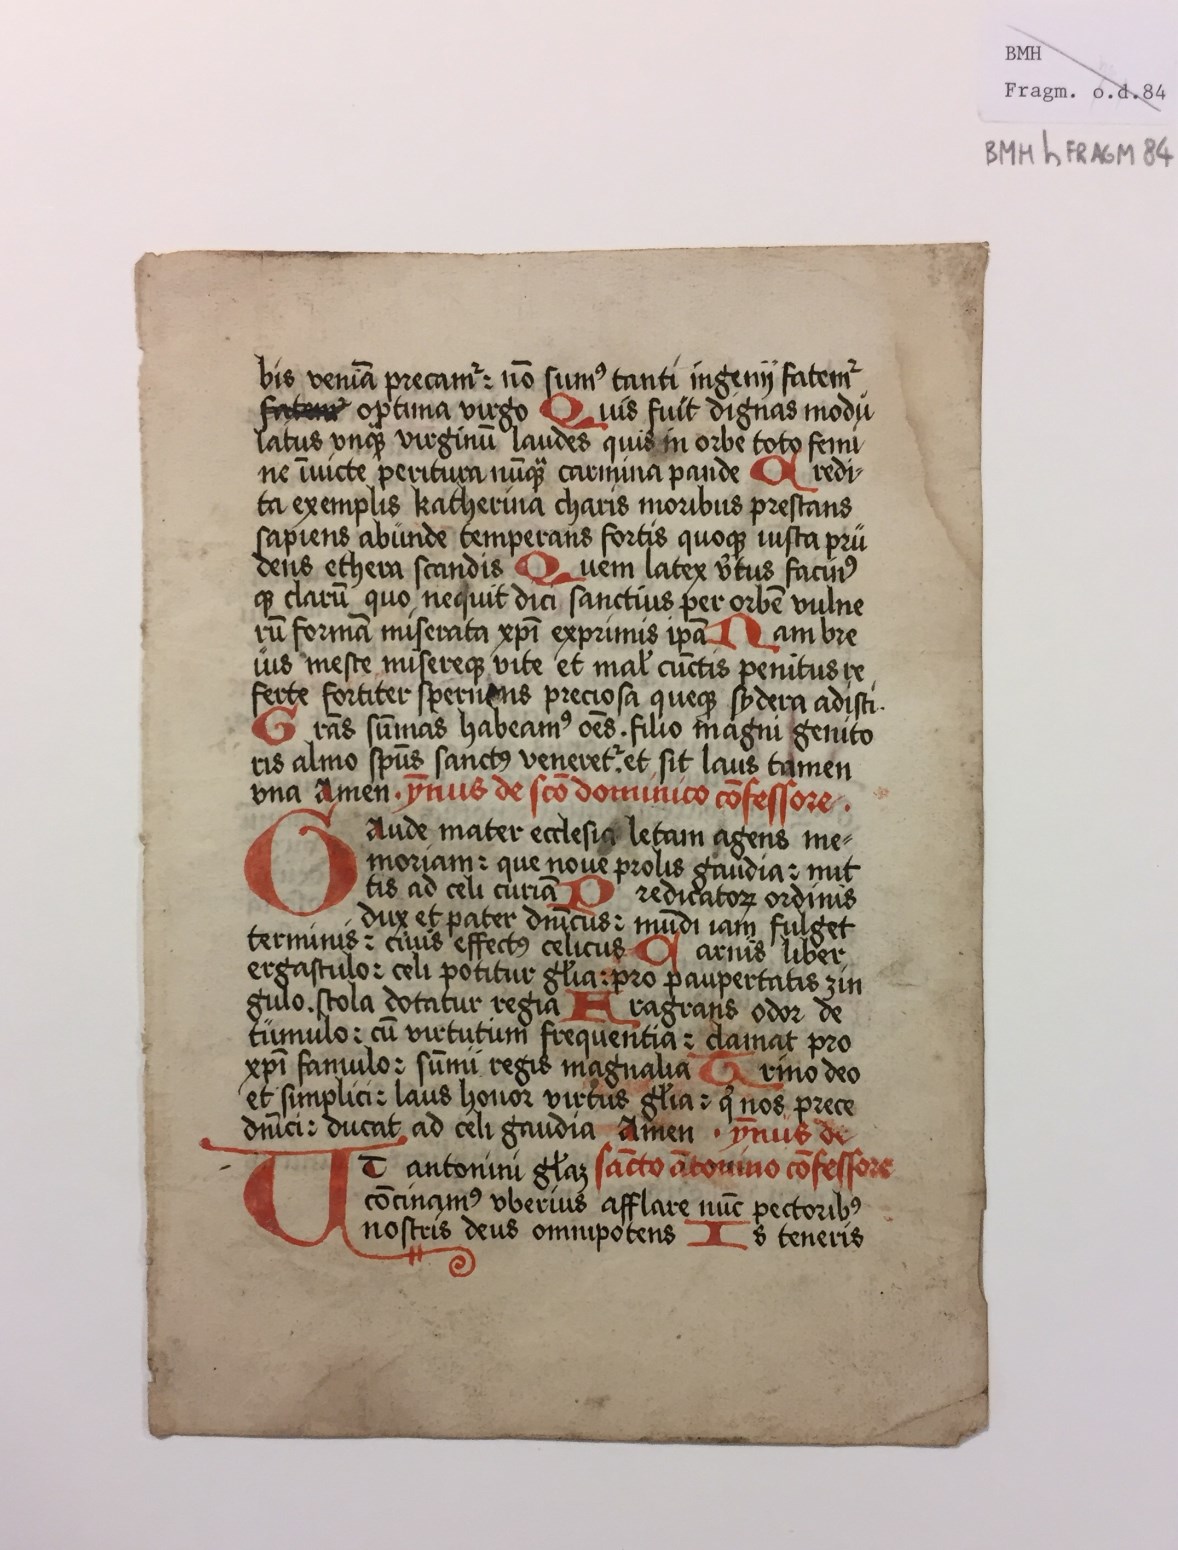 BMH
Fragm. o.d.84
BMH h FRAGM 84
bis veniā precamʳ: nō sumꝰ tanti ingenij fatemʳ
fatemʳ optima virgo Quis fuit dignas modu
latus vnqꝫ virginū laudes quis in orbe toto femi
ne īuicte peritura nūqꝫ carmina pande Credi-
ta exemplis katherina charis moribus prestans
sapiens abunde temperans fortis quoqꝫ iusta pru
dens ethera scandis Quem latex facinꝰ
qꝫ clarū quo nequit dici sanctius per orbē vulne
rū formā miserata xp̄i exprimis ip̄a Nam bre
uis meste misereqꝫ vite et mal̄ cūctis penitus re
ferte fortiter spernens preciosa queqꝫ sydera adisti.
Grās sūmas habeamꝰ oēs. filio magni genito
ris almo sp̄us sanctꝰ veneretʳ. et sit laus tamen
vna Amen. ȳnus de scō dominico cōfessore.
GAude mater ecclesia letam agens me-
moriam: que noue prolis gaudia: mit
tis ad celi curiā Predicatoꝝ ordinis
dux et pater dn̄icus: mūdi iam fulget
terminis: ciuis effectꝰ celicus Carnis liber
ergastulo: celi potitur gl̄ia: pro paupertatis zin
gulo. stola dotatur regia Fragrans odor de
tumulo: cū virtutum frequentia: clamat pro
xp̄i famulo: sūmi regis magnalia Trino deo
et simplici: laus honor virtus gl̄ia: qͦ nos prece
dn̄ici: ducat ad celi gaudia Amen. ȳnus de
UT antonini gl̄aꝫ sācto ātonino cōfessore
cōcinamꝰ vberius afflare nūc pectoribꝰ
nostris deus omnipotens Is teneris